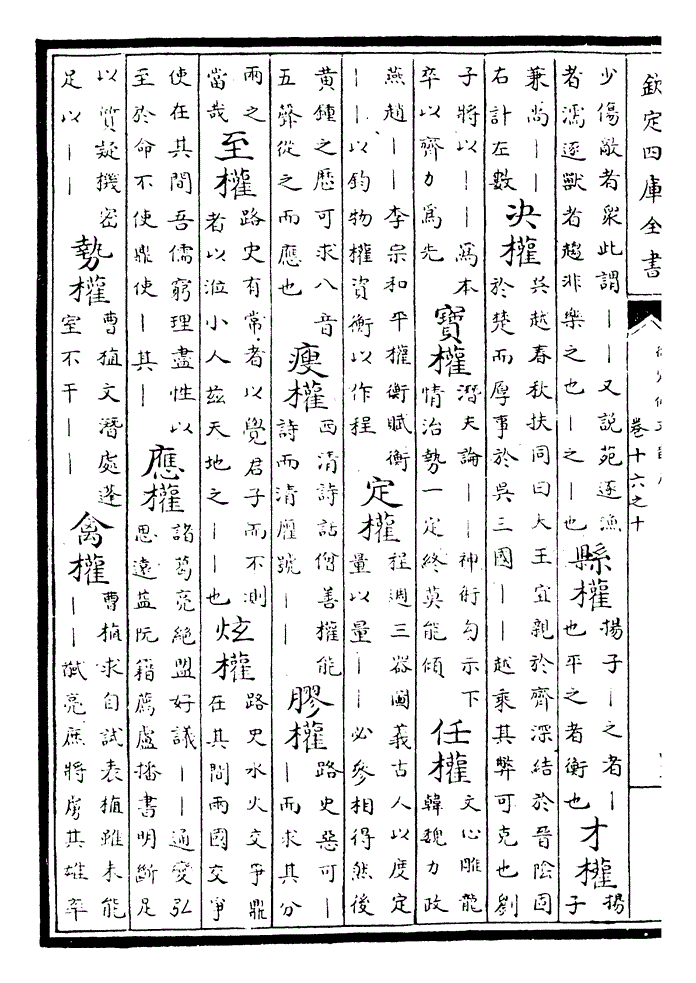 欽定四庫全書
卷十六之十
少傷敵者衆此謂丨丨又說苑逐漁
者濡逐獸者趨非樂之也丨之丨也
縣權
揚子丨之者丨
也平之者衡也
才權
揚
子
兼尚丨丨
右計左數
決權
吳越春秋扶同曰大王宜親於齊深結於晉陰固
於楚而厚事於吳三國丨丨越乘其弊可克也劉
子將以丨丨爲本
卒以齊力爲先
寶權
潛夫論丨丨神術勾示下
情治勢一定終莫能傾
任權
文心雕龍
韓魏力政
燕趙丨丨李宗和平權衡賦衡
丨丨以鈞物權資衡以作程
定權
程迥三器圖義古人以度定
量以量丨丨必參相得然後
黃鍾之歷可求八音
五聲從之而應也
瘦權
西清詩話僧善權能
詩而清癯號丨丨
膠權
路史惡可丨
丨而求其分
兩之
當哉
至權
路史有常者以覺君子而不測
者以涖小人茲天地之丨丨也
炫權
路史水火交爭鼎
在其間兩國交爭
使在其間吾儒窮理盡性以
至於命不使鼎使丨其丨
應權
諸葛亮絕盟好議丨丨通變弘
思遠益阮籍薦盧播書明斷足
以質疑機密
足以丨丨
勢權
曹植文潛處蓬
室不干丨丨
禽權
曹植求自試表植雖未能
丨丨馘亮庶將虜其雄率